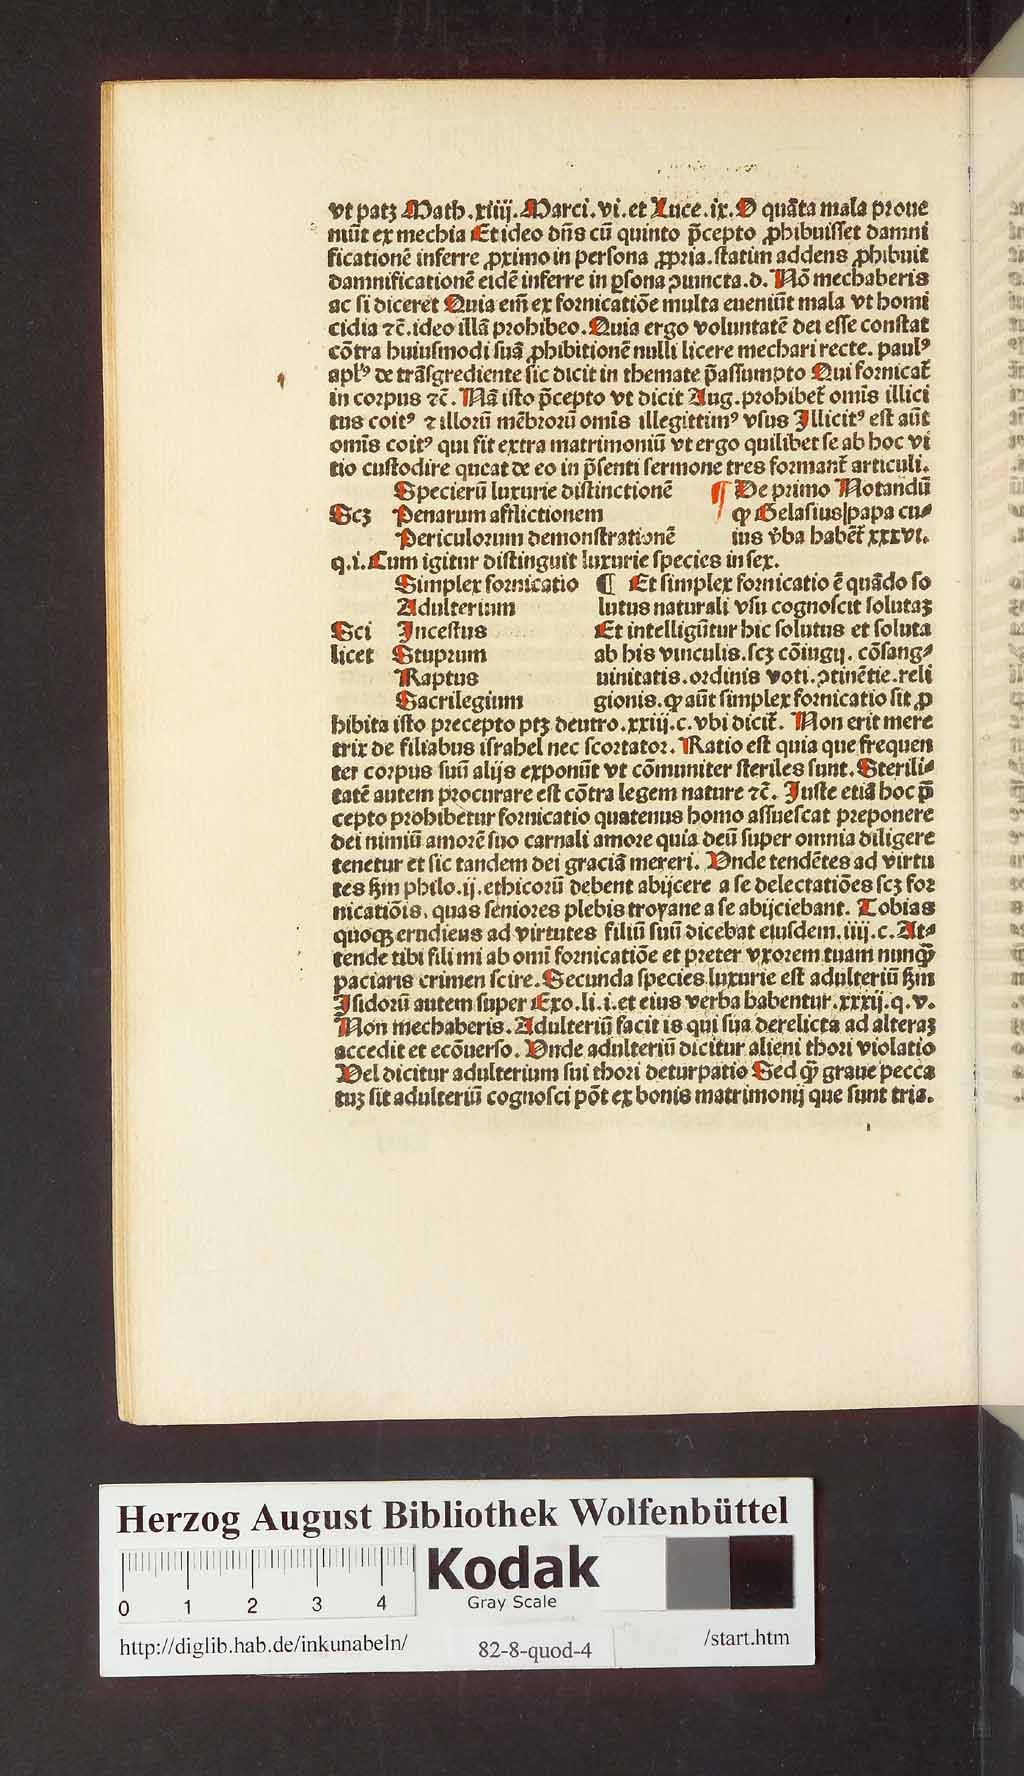 vt patꝫ Math.xiiij.Marci.vi.et Luce.ix.O quāta mala proue
niūt ex mechia Et ideo dn̄s cū quinto p̄cepto ꝓhibuisset damni
ficationē inferre ꝓximo in persona ꝓpria.statim addens ꝓhibuit
damnificationē eidē inferre in ꝑsona ꝯiuncta.d. Nō mechaberis
ac si diceret Quia em̄ ex fornicatiōe multa eueniūt mala vt homi
cidia ⁊c̄.ideo illā prohibeo.Quia ergo voluntatē dei esse constat
cōtra huiusmodi suā ꝓhibitionē nulli licere mechari recte. paulꝰ
aplꝰ de trāsgrediente sic dicit in themate p̄assumpto Qui fornicat̄
in corpus ⁊c̄. Nā isto p̄cepto vt dicit Aug.prohibet̄ omīs illici
tus coitꝰ ⁊ illorū mēbrorū omīs illegittimꝰ vsus Illicitꝰ est aūt
omīs coitꝰ qui fit extra matrimoniū vt ergo quilibet se ab hoc vi
tio custodire queat de eo in p̄senti sermone tres formant̄ articuli.
Specierū luxurie distinctionē ¶ De primo Notandū
Scꝫ Penarum afflictionem ꝙ Gelasius papa cu⸗
Periculorum demonstrationē ius v̄ba habēt̄ xxxvi.
q.i.Cum igitur distinguit luxurie species in sex.
Simplex fornicatio ¶ Et simplex fornicatio ē quādo so
Adulterium lutus naturali vsu cognoscit solutaꝫ
Sci Incestus Et intelligūtur hic solutus et soluta
licet Stuprum ab his vinculis.scꝫ cōiugij. cōsang⸗
Raptus uinitatis.ordinis voti.ꝯtinētie.reli
Sacrilegium gionis.ꝙ aūt simplex fornicatio sit ꝓ
hibita isto precepto ptꝫ deutro.xxiij.c.vbi dicit̄. Non erit mere
trix de filiabus israhel nec scortator. Ratio est quia que frequen
ter corpus suū alijs exponūt vt cōmuniter steriles sunt.Sterili⸗
tatē autem procurare est cōtra legem nature ⁊c̄. Iuste etiā hoc p̄
cepto prohibetur fornicatio quatenus homo assuescat preponere
dei nimiū amorē suo carnali amore quia deū super omnia diligere
tenetur et sic tandem dei graciā mereri. Vnde tendētes ad virtu
tes ẜm philo.ij.ethicorū debent abijcere a se delectatiōes scꝫ for
nicatiōis. quas seniores plebis troyane a se abijciebant. Tobias
quoqꝫ erudiens ad virtutes filiū suū dicebat eiusdem.iiij.c.At⸗
tende tibi fili mi ab omī fornicatiōe et preter vxorem tuam nunqꝫ̄
paciaris crimen scire.Secunda species luxurie est adulteriū ẜm
Isidorū autem super Exo.li.i.et eius verba habentur.xxxij.q.v.
Non mechaberis.Adulteriū facit is qui sua derelicta ad alteraꝫ
accedit et ecōuerso. Vnde adulteriū dicitur alieni thori violatio
Vel dicitur adulterium sui thori deturpatio Sed qꝫ̄ graue pecca
tuꝫ sit adulteriū cognosci pōt ex bonis matrimonij que sunt tria.
Herzog August Bibliothek Wolfenbüttel
0 1 2 3 4
Kodak
Gray Scale
http://diglib.hab.de/inkunabeln/ 82-8-quod-4 /start.htm